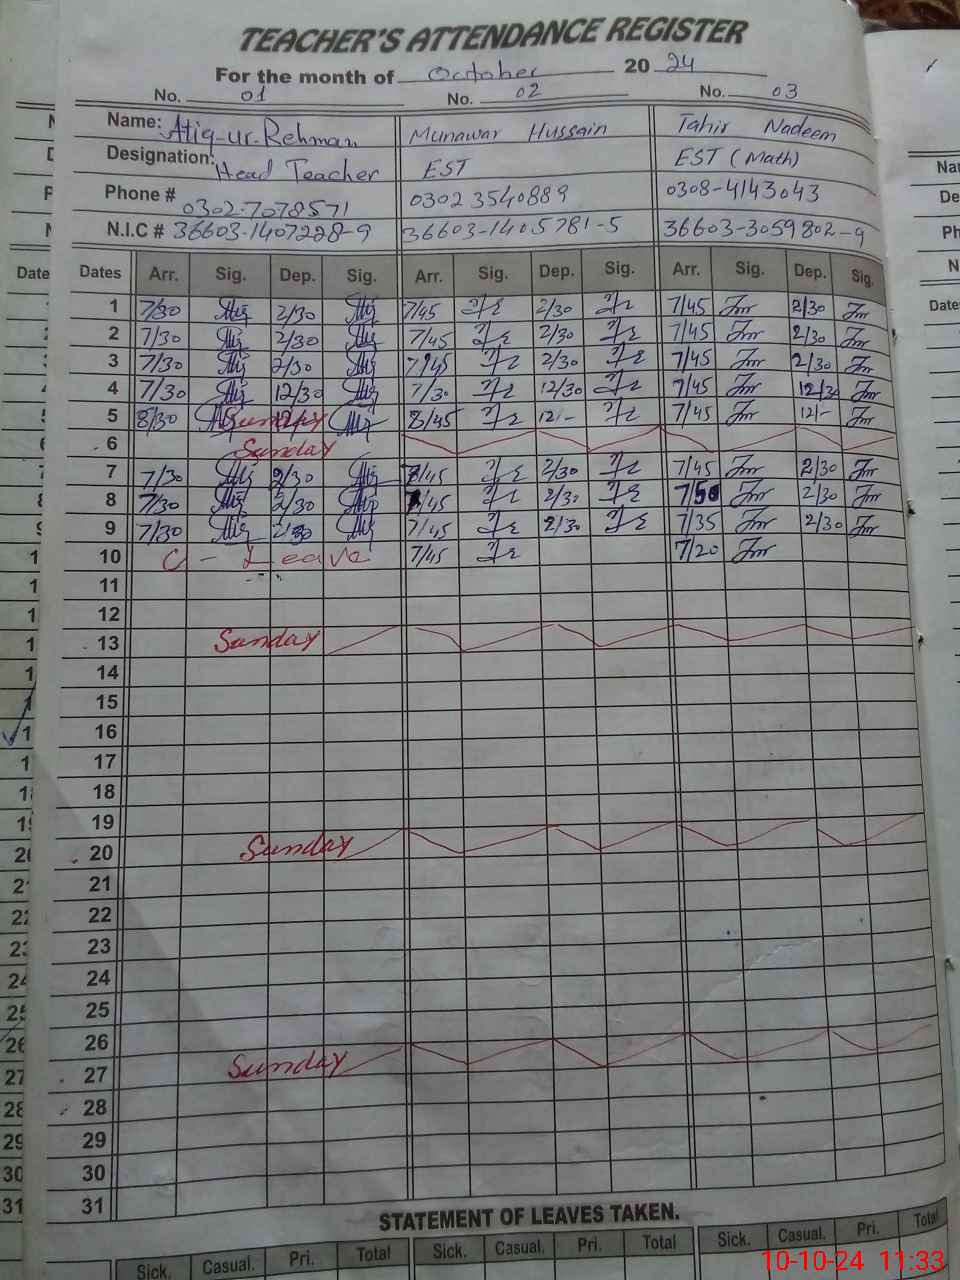 TEACHER'S ATTENDANCE REGISTER
For the month of October 20 24
No. 01 No. 02 No. 03
Name: Atiq-ur-Rehman Munawar Hussain Tahir Nadeem
Designation: Head Teacher EST EST (Math)
Phone # 0302-7078571 0302 3540889 0308-4143043
N.I.C # 36603-1407228-9 36603-1405781-5 36603-3059802-9
Dates Arr. Sig. Dep. Sig. Arr. Sig. Dep. Sig. Arr. Sig. Dep. Sig.
1 7/30 2/30 7/45 2/30 7/45 2/30
2 7/30 2/30 7/45 2/30 7/45 2/30
3 7/30 2/30 7/45 2/30 7/45 2/30
4 7/30 12/30 7/30 12/30 7/45 12/30
5 8/30 Sunday 8/45 12/- 7/45 12/-
6 Sunday
7 7/30 2/30 7/45 2/30 7/45 2/30
8 7/30 2/30 7/45 2/30 7/50 2/30
9 7/30 2/30 7/45 2/30 7/35 2/30
10 C - Leave 7/45 7/20
11
12
13 Sunday
14
15
16
17
18
19
20 Sunday
21
22
23
24
25
26
27 Sunday
28
29
30
31
STATEMENT OF LEAVES TAKEN.
Sick. Casual. Pri. Total Sick. Casual. Pri. Total Sick. Casual. Pri. Total
10-10-24 11:33